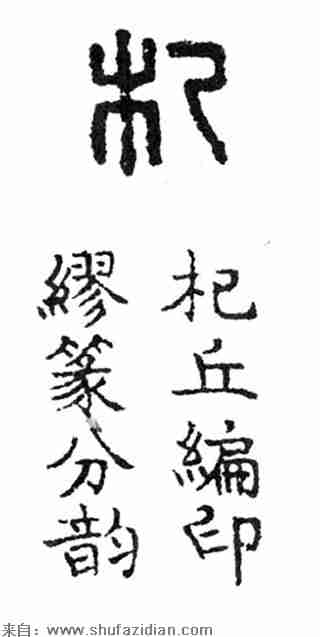 杞
杞丘編印
繆篆分韵
来自：www.shufazidian.com